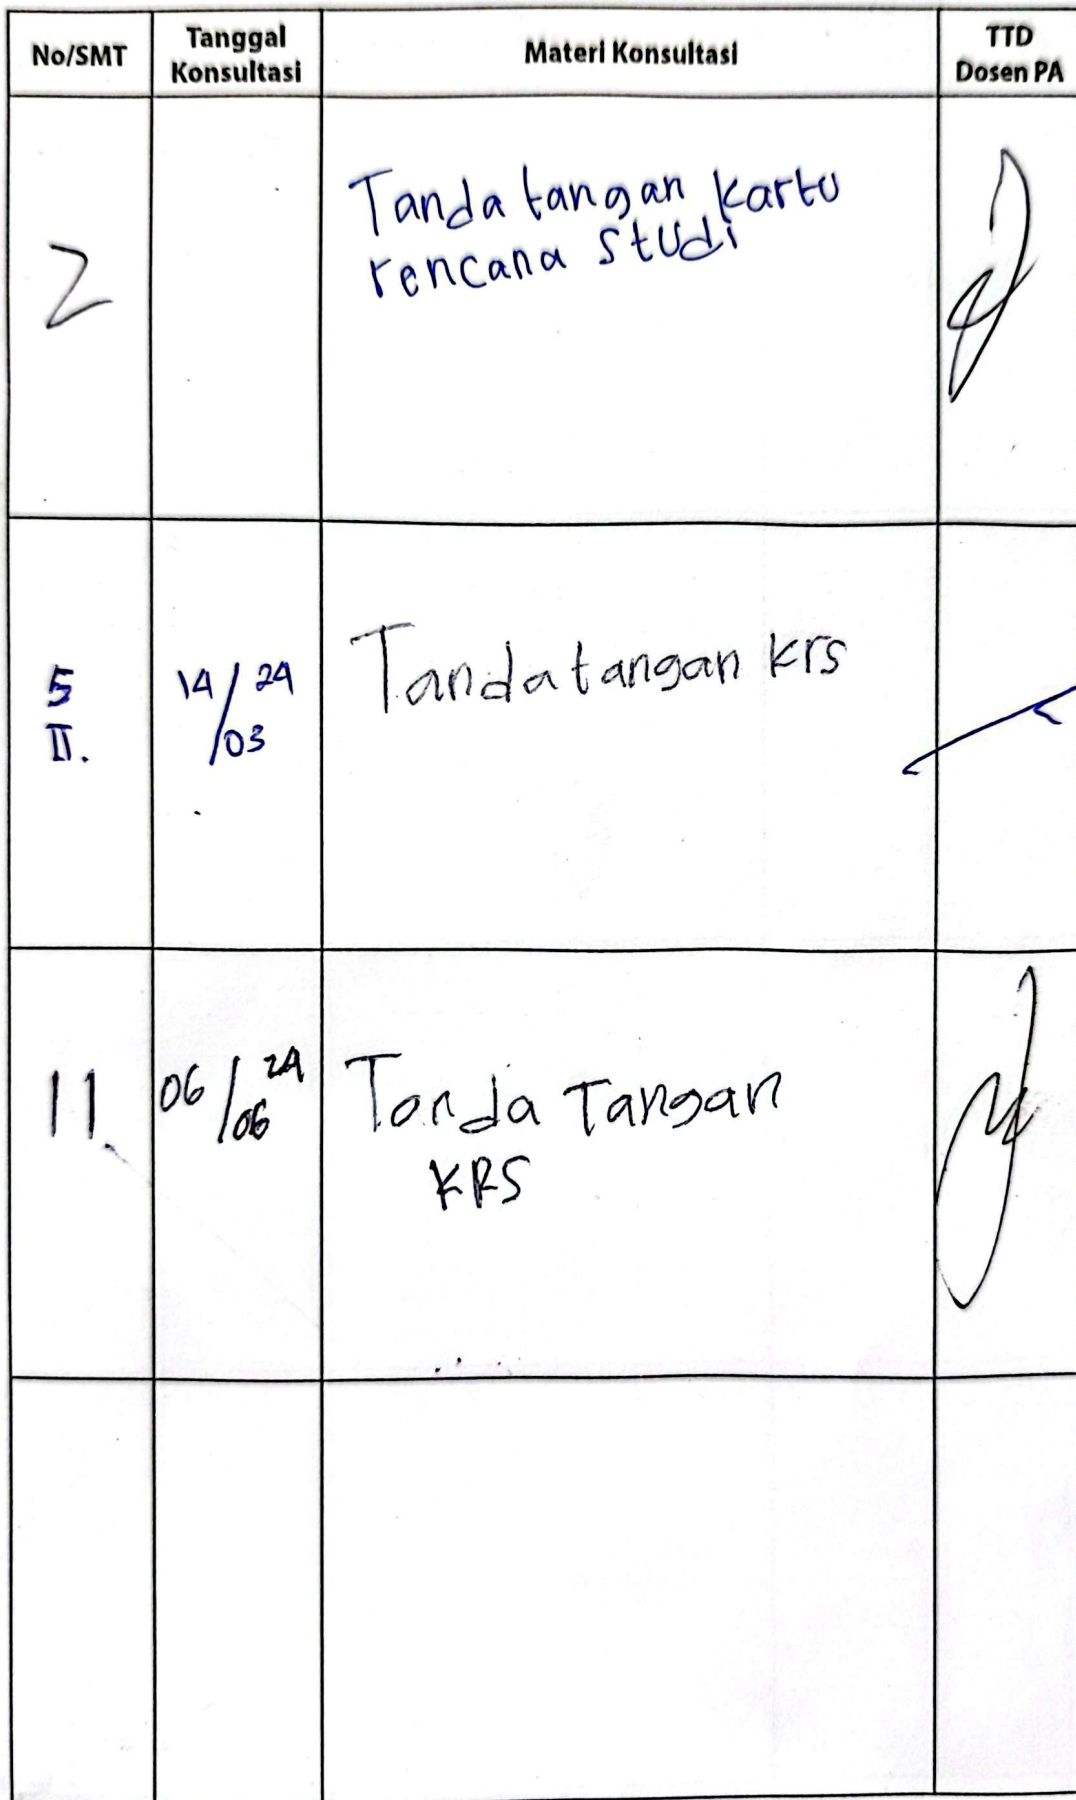 No/SMT
Tanggal
Konsultasi
Materi Konsultasi
TTD
Dosen PA
2
Tanda tangan kartu
rencana studi
5
II.
14/24
03
Tandatangan krs
11.
06/24
06
Tanda Tangan
KRS